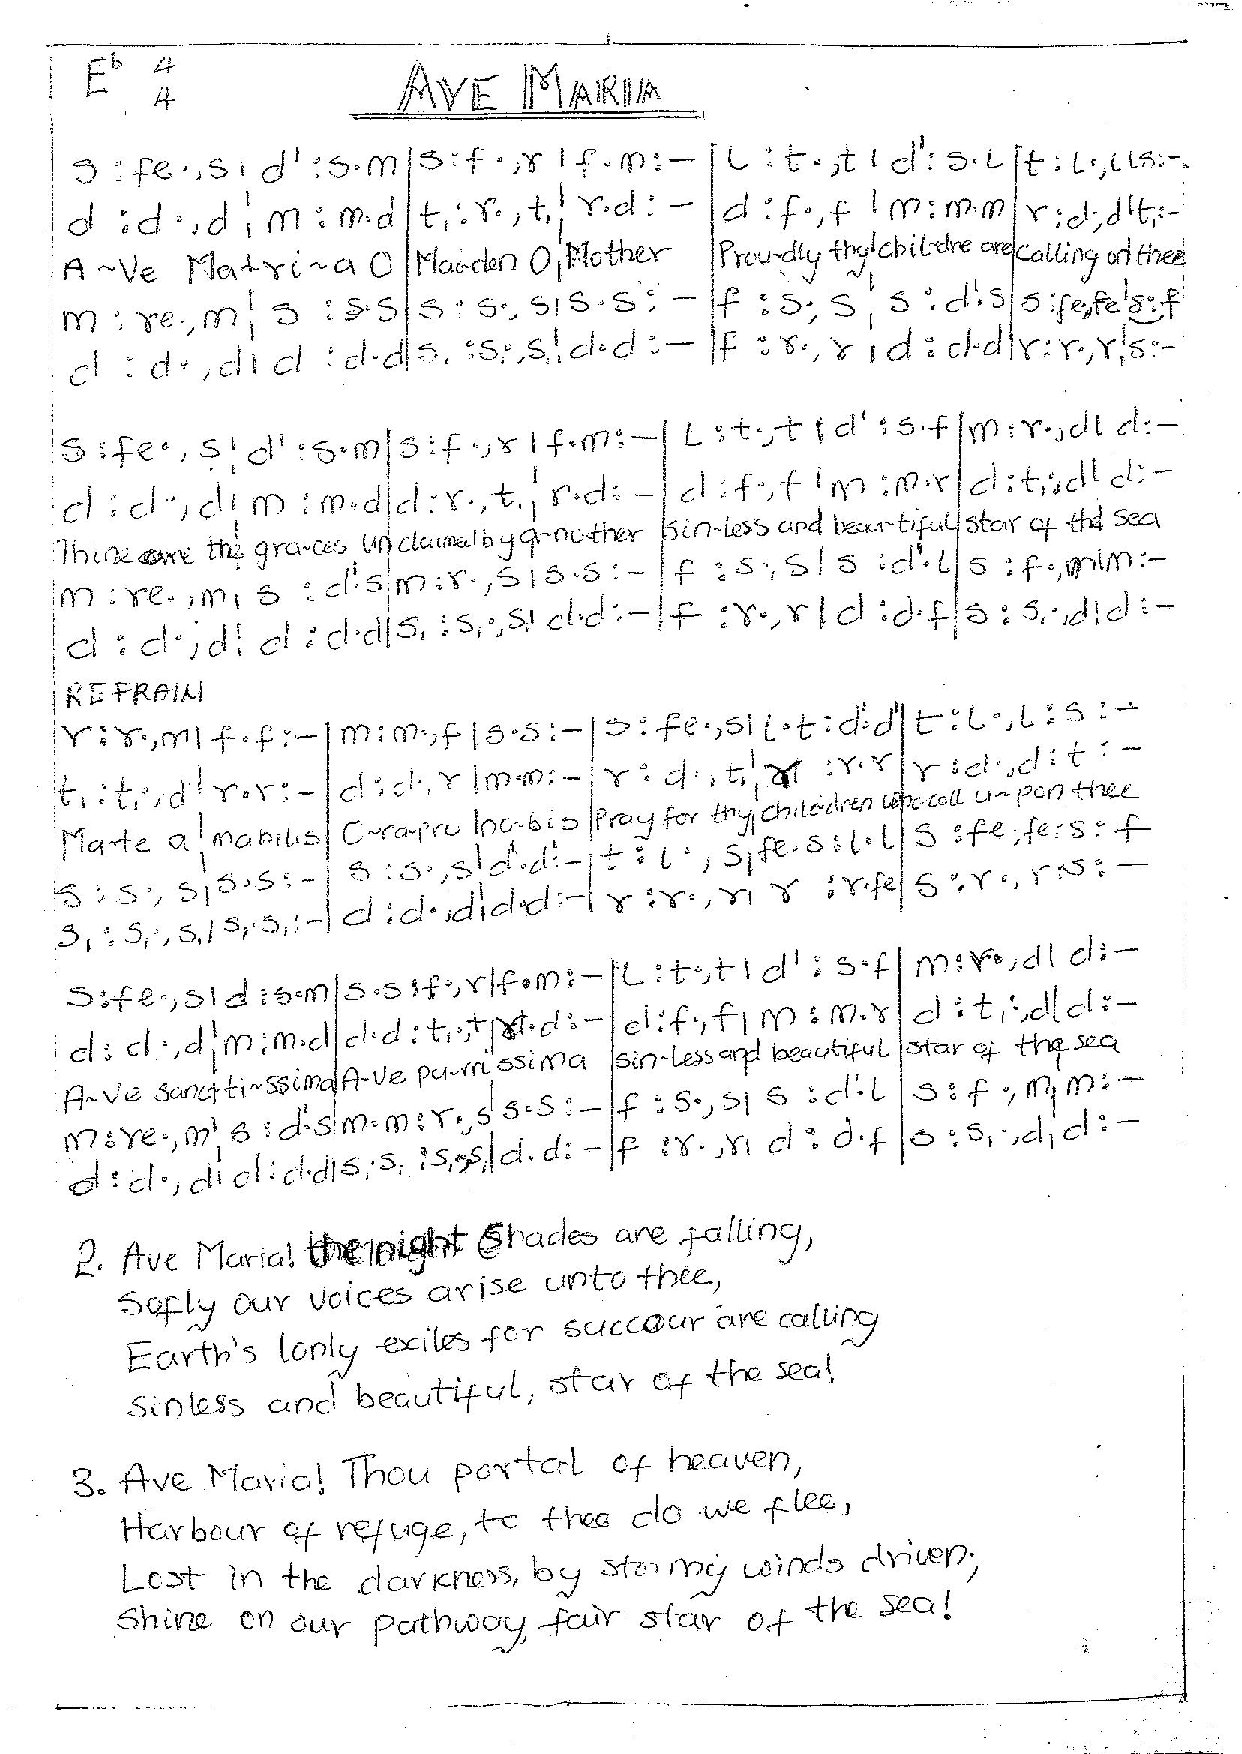 E♭ 4/4 AVE MARIA
s :fe·,s| d' :s·m|s:f·,r|f·m:-|L:t·,t|d':s·L|t:L·,L|s:-
d :d·,d|m:m·d|t,:r·,t,|r·d:-|d:f·,f|m:m·m|r:d·,d|t,:-
A~Ve Ma+ri~a O|Maiden O, Mother Proudly thy children are calling on thee
m:re·,m|s:s·s|s:s·,s|s·s:-|f:s·,s|s:d'·s|s:fe·,fe|s:f
d:d·,d|d:d·d|s,:s,·,s,|d·d:-|f:r·,r|d:d·d|r:r·,r|s:-
s:fe·,s|d':s·m|s:f·,r|f·m:-|L:t·,t|d':s·f|m:r·,d|d:-
d:d·,d|m:m·d|d:r·,t,|r·d:-|d:f·,f|m:m·r|d:t,·,d|d:-
Thine are the gra-ces unclaimed by a-nother sin-less and beau-tiful star of the sea
m:re·,m|s:d'·s|m:r·,s|s·s:-|f:s·,s|s:d'·L|s:f·,m|m:-
d:d·,d|d:d·d|s,:s,·,s,|d·d:-|f:r·,r|d:d·f|s:s,·,d|d:-
REFRAIN
r:r·,m|f·f:-|m:m·,f|s·s:-|s:fe·,s|L·t:d'·d'|t:L·,L:s:-
t,:t,·,d|r·r:-|d:d·,r|m·m:-|r:d·,t,|r:r·r|r:d·,d:t:-
Ma-te a|mabilis|O~ra pro|no-bis|Pray for thy|children who call u~pon thee
s:s·,s|s·s:-|s:s·,s|d'·d':-|t:L·,s|fe·s:L·L|s:fe·,fe:s:f
s,:s,·,s,|s,·s,:-|d:d·,d|d·d:-|r:r·,r|r:r·fe|s:r·,r:s:-
s:fe·,s|d:s·m|s·s:f·,r|f·m:-|L:t·,t|d':s·f|m:r·,d|d:-
d:d·,d|m:m·d|d·d:t,·,t,|r·d:-|d:f·,f|m:m·r|d:t,·,d|d:-
A~Ve sanctti~ssima|A~Ve pu~rrissima sin-less and beautiful star of the sea
m:re·,m|s:d'·s|m·m:r·,s|s·s:-|f:s·,s|s:d'·L|s:f·,m|m:-
d:d·,d|d:d·d|s,·s,:s,·,s,|d·d:-|f:r·,r|d:d·f|s:s,·,d|d:-
2. Ave Maria! the night Shades are falling,
Sofly our voices arise unto thee,
Earth's lonly exiles for succour are calling
Sinless and beautiful, star of the sea!
3. Ave Maria! Thou portal of heaven,
Harbour of refuge, to thee do we flee,
Lost in the darkness, by stormy winds driven,
Shine on our pathway, fair star of the sea!